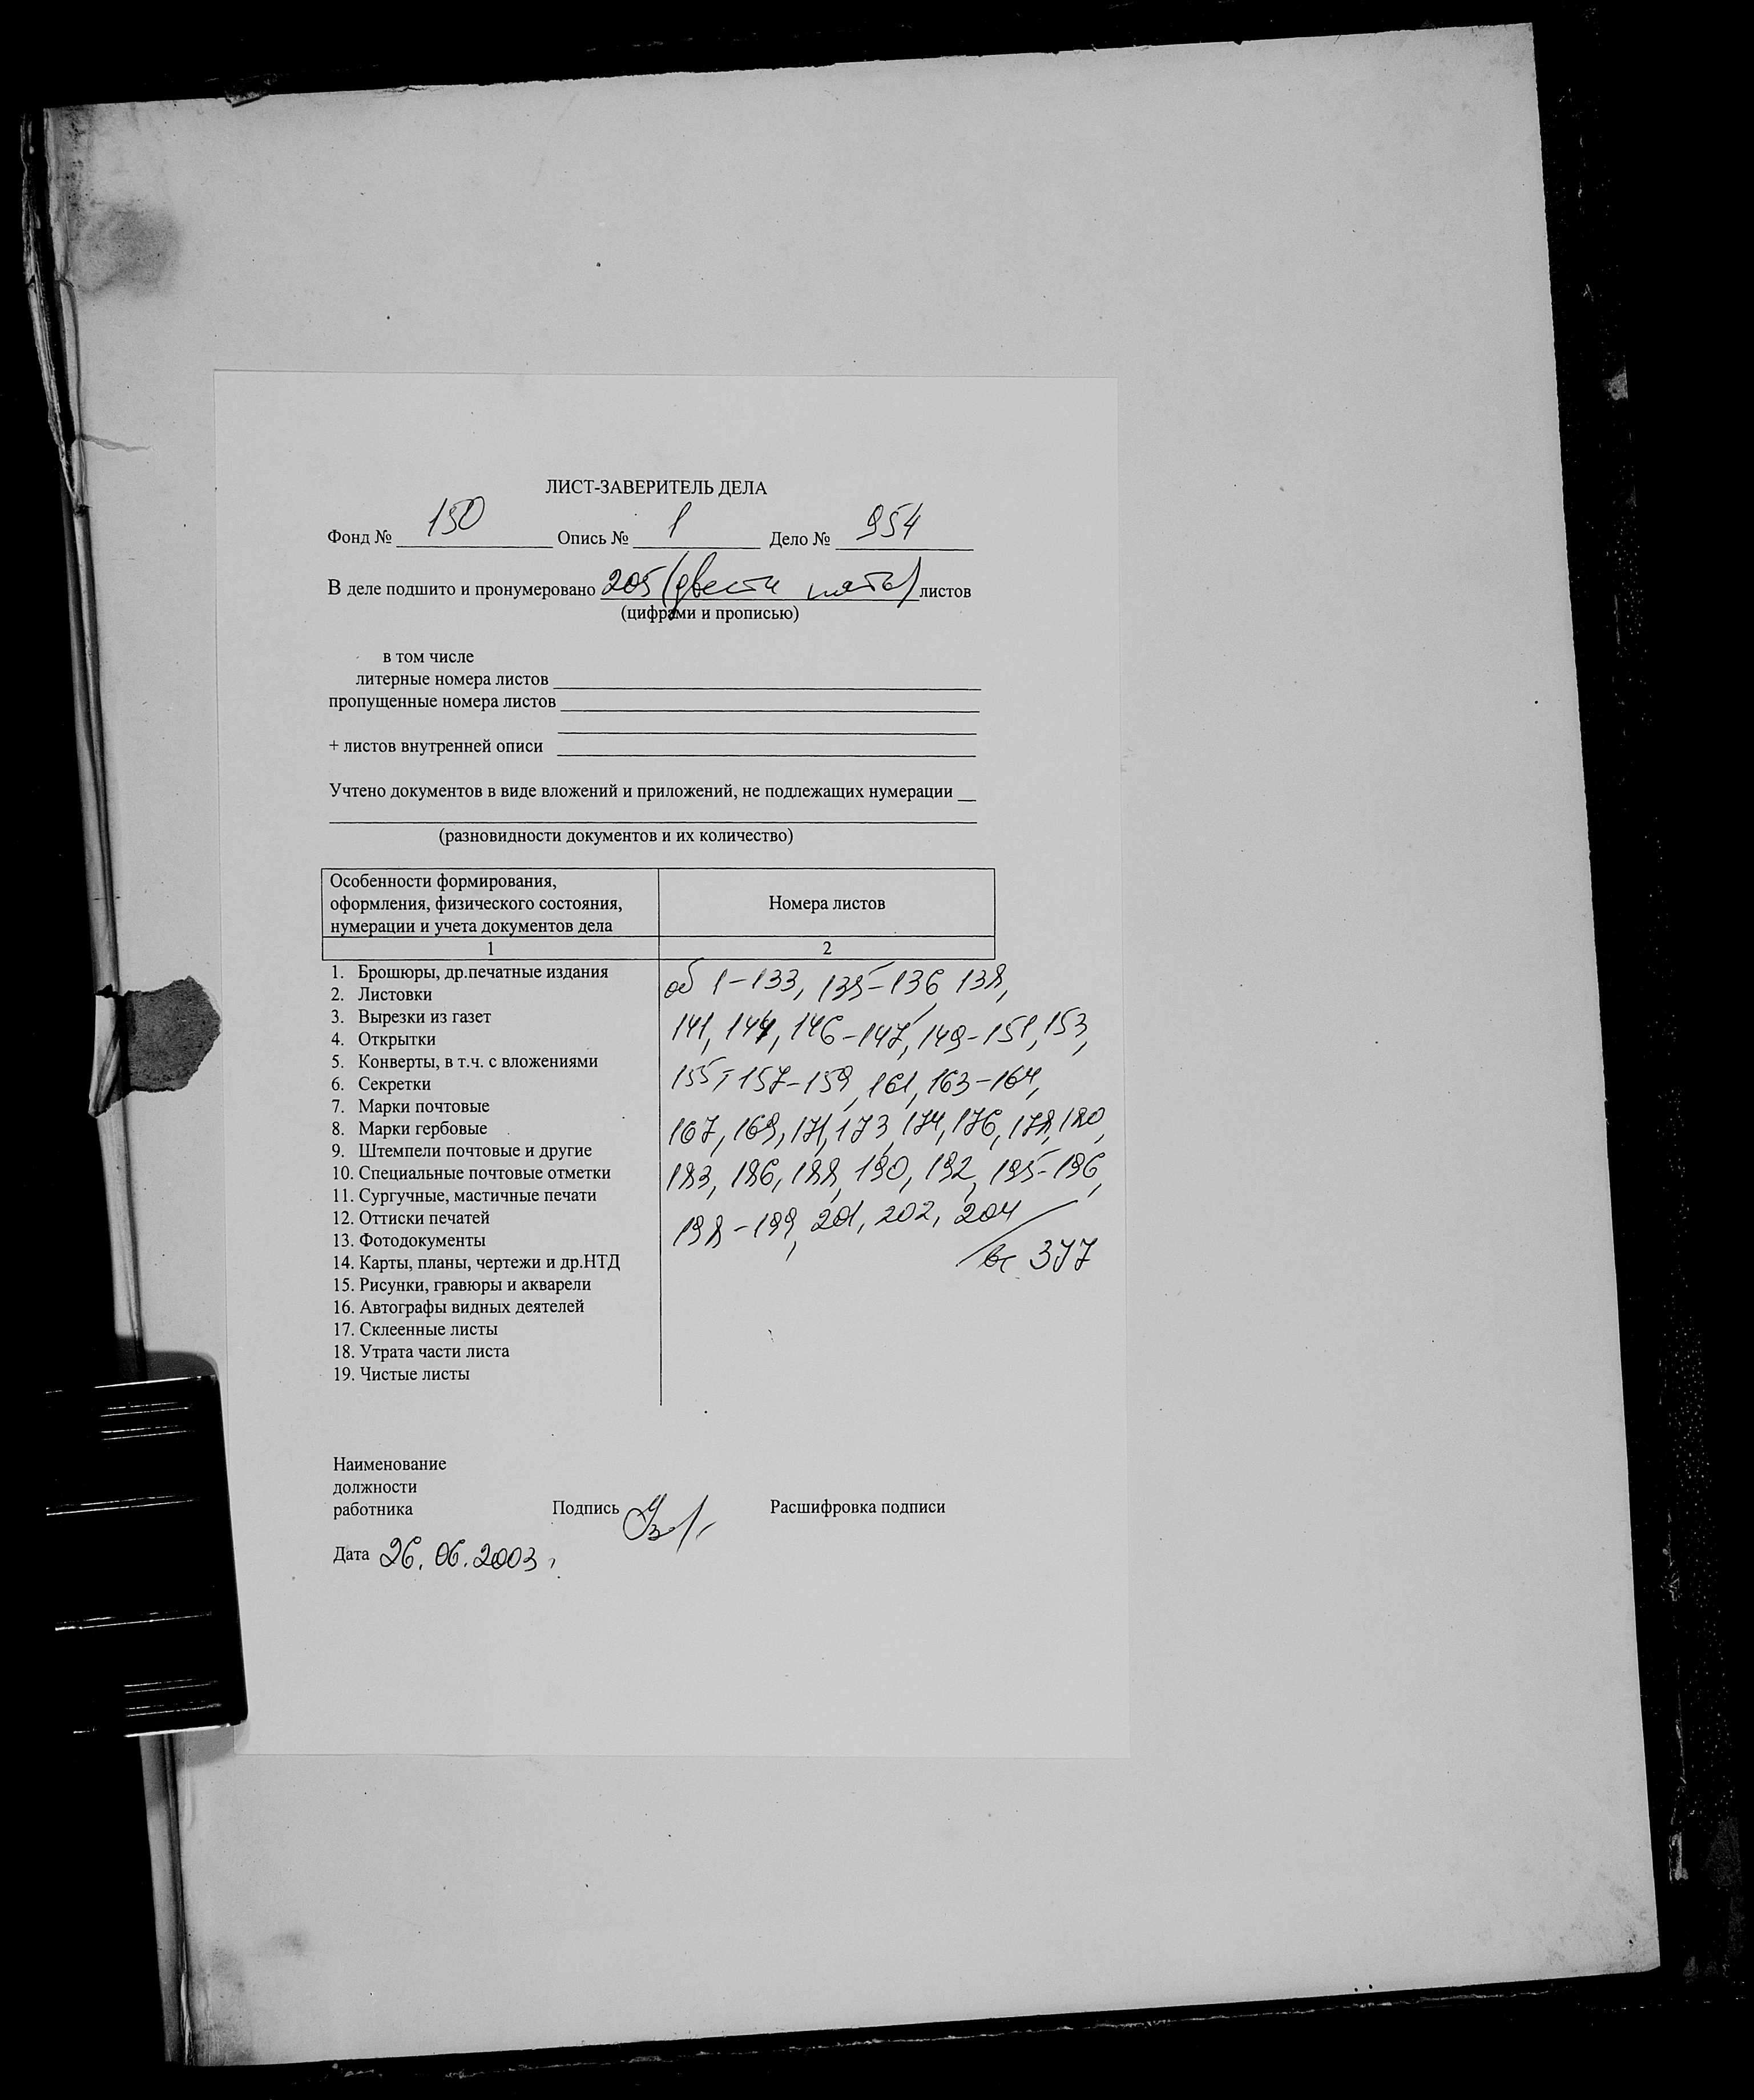 ЛИСТ-ЗАВЕРИТЕЛЬ ДЕЛА
Фонд № 150 Опись № 1 Дело № 954
В деле подшито и пронумеровано 205 (двести пять) листов
(цифрами и прописью)
в том числе
литерные номера листов
пропущенные номера листов
+ листов внутренней описи
Учтено документов в виде вложений и приложений, не подлежащих нумерации
(разновидности документов и их количество)
Особенности формирования,
оформления, физического состояния,
нумерации и учета документов дела
Номера листов
1 2
1. Брошюры, др.печатные издания
2. Листовки
3. Вырезки из газет
4. Открытки
5. Конверты, в т.ч. с вложениями
6. Секретки
7. Марки почтовые
8. Марки гербовые
9. Штемпели почтовые и другие
10. Специальные почтовые отметки
11. Сургучные, мастичные печати
12. Оттиски печатей
13. Фотодокументы
14. Карты, планы, чертежи и др.НТД
15. Рисунки, гравюры и акварели
16. Автографы видных деятелей
17. Склеенные листы
18. Утрата части листа
19. Чистые листы
об 1-133, 135-136, 138,
141, 144, 146-147, 149-151, 153,
155, 157-159, 161, 163-164,
167, 169, 171, 173, 174, 176, 178, 180,
183, 186, 188, 190, 192, 195-196,
198-199, 201, 202, 204
377
Наименование
должности
работника Подпись Расшифровка подписи
Дата 26.06.2003 г.